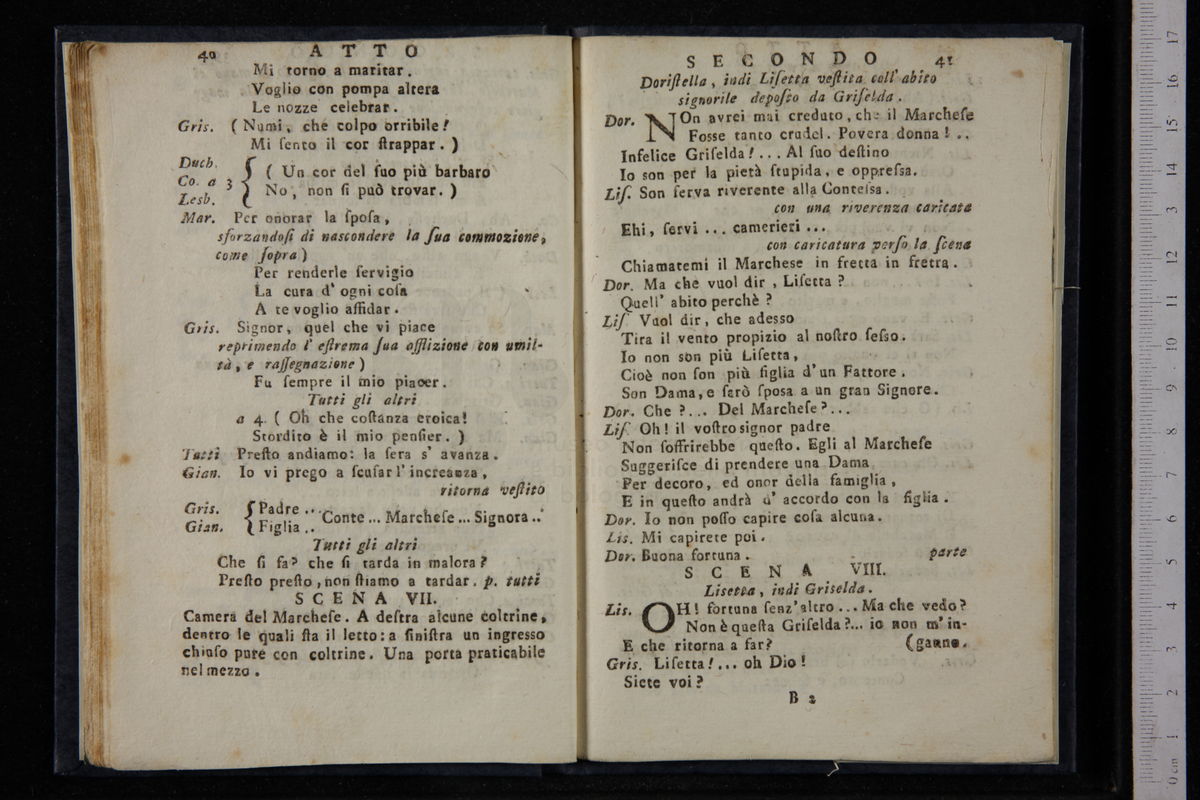 40 ATTO
Mi torno a maritar.
Voglio con pompa altera
Le nozze celebrar.
Gris. (Numi, che colpo orribile!
Mi ſento il cor ſtrappar.)
Duch.
Co. a 3 { ( Un cor del ſuo più barbaro
Lesb. No, non ſi può trovar. )
Mar. Per onorar la ſpoſa,
sforzandoſi di nascondere la ſua commozione,
come ſopra)
Per renderle ſervigio
La cura d' ogni coſa
A te voglio affidar.
Gris. Signor, quel che vi piace
reprimendo l' eſtrema ſua afflizione con umil-
tà, e raſſegnazione)
Fu ſempre il mio piacer.
Tutti gli altri
a 4. ( Oh che coſtanza eroica!
Stordito è il mio penſier. )
Tutti Preſto andiamo: la ſera s' avanza.
Gian. Io vi prego a ſcuſar l' increanza,
ritorna veſtito
Gris. { Padre ... Conte ... Marcheſe ... Signora ..
Gian. { Figlia ..
Tutti gli altri
Che ſi fa? che ſi tarda in malora?
Preſto preſto, non ſtiamo a tardar. p. tutti
SCENA VII.
Camera del Marcheſe. A deſtra alcune coltrine,
dentro le quali ſta il letto: a ſiniſtra un ingresso
chiuſo pure con coltrine. Una porta praticabile
nel mezzo.
SECONDO 41
Doriſtella, indi Liſetta veſtita coll' abito
signorile depoſto da Griſelda.
Dor. NOn avrei mai creduto, che il Marcheſe
Fosse tanto crudel. Povera donna! ..
Infelice Griſelda!... Al ſuo deſtino
Io son per la pietà ſtupida, e oppreſsa.
Liſ. Son ſerva riverente alla Conteſsa.
con una riverenza caricata
Ehi, ſervi ... camerieri ...
con caricatura verſo la ſcena
Chiamatemi il Marchese in fretta in fretta.
Dor. Ma che vuol dir, Liſetta?
Quell' abito perchè?
Liſ Vuol dir, che adesso
Tira il vento propizio al noſtro ſeſso.
Io non sòn più Liſetta,
Cioè non ſon più figlia d'un Fattore.
Son Dama, e ſarò ſposa a un gran Signore.
Dor. Che?... Del Marcheſe?...
Liſ Oh! il voſtro signor padre
Non ſoffrirebbe queſto. Egli al Marcheſe
Suggeriſce di prendere una Dama
Per decoro, ed onor della famiglia,
E in queſto andrà d' accordo con la figlia.
Dor. Io non poſſo capire coſa alcuna.
Lis. Mi capirete poi.
Dor. Buona fortuna. parte
SCENA VIII.
Lisetta, indi Griselda.
Lis. OH! fortuna ſenz' altro... Ma che vedo?
Non è queſta Griſelda?... io non m' in-
E che ritorna a far? (ganno.
Gris. Liſetta!... oh Dio!
Siete voi?
B 2
17
16
15
14
13
12
11
10
9
8
7
6
5
4
3
2
1
0 cm